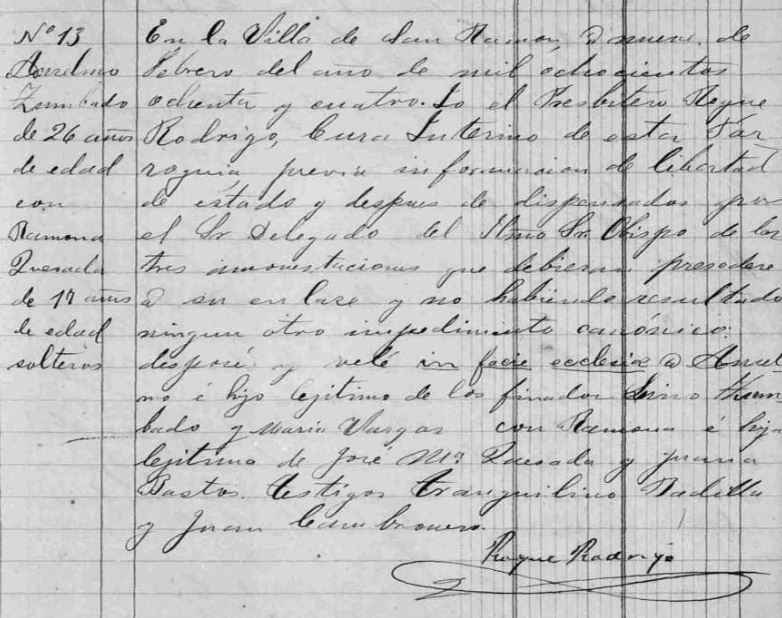 Nº 13
Anselmo
Zumbado
de 26 años
de edad
con
Ramona
Quesada
de 17 años
de edad
solteros
En la Villa de San Ramon á nueve de
Febrero del año de mil ochocientos
ochenta y cuatro. Yo el Presbitero Roque
Rodrigo, Cura Interino de esta Par
roquia previa informacion de libertad
de estado y despues de dispensados por
el Sr Delegado del Iltmo Sr. Obispo de las
tres amonestaciones que debieran presedere
á su enlase y no habiendo resultado
ningun otro impedimento canónico:
desposé y velé in facie ecclesiæ á Ansel
mo é hijo lejitimo de los finados Lino Zum
bado y Maria Vargas con Ramona é hija
lejitima de José Mª Quesada y Juana
Bastos. Testigos Tranquilino Badilla
y Juan Cambronero.
Roque Rodrigo